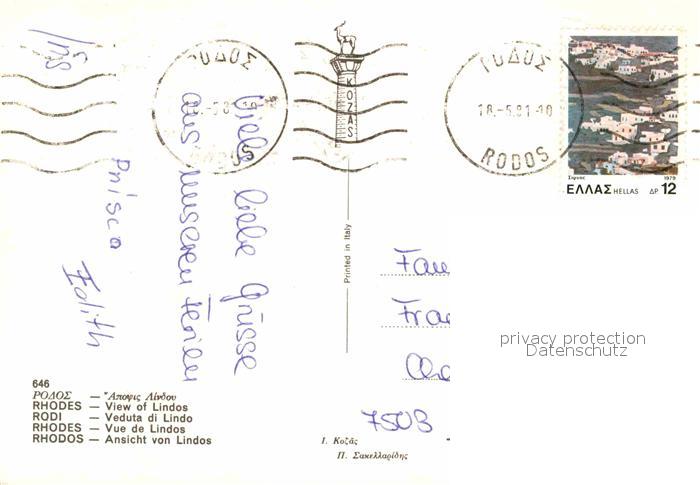 ΡΟΔΟΣ
RODOS
ΚΟΖΑΣ
ΡΟΔΟΣ
18.-5.81-10
RODOS
Σίφνος 1979
ΕΛΛΑΣ HELLAS ΔΡ 12
Viele liebe Grüsse
aus unseren Ferien
Prisca
Edith
Printed in Italy
Fam
Fra
7503
privacy protection
Datenschutz
646
ΡΟΔΟΣ — Ἄποψις Λίνδου
RHODES — View of Lindos
RODI — Veduta di Lindo
RHODES — Vue de Lindos
RHODOS — Ansicht von Lindos
Ι. Κοζάς
Π. Σακελλαρίδης